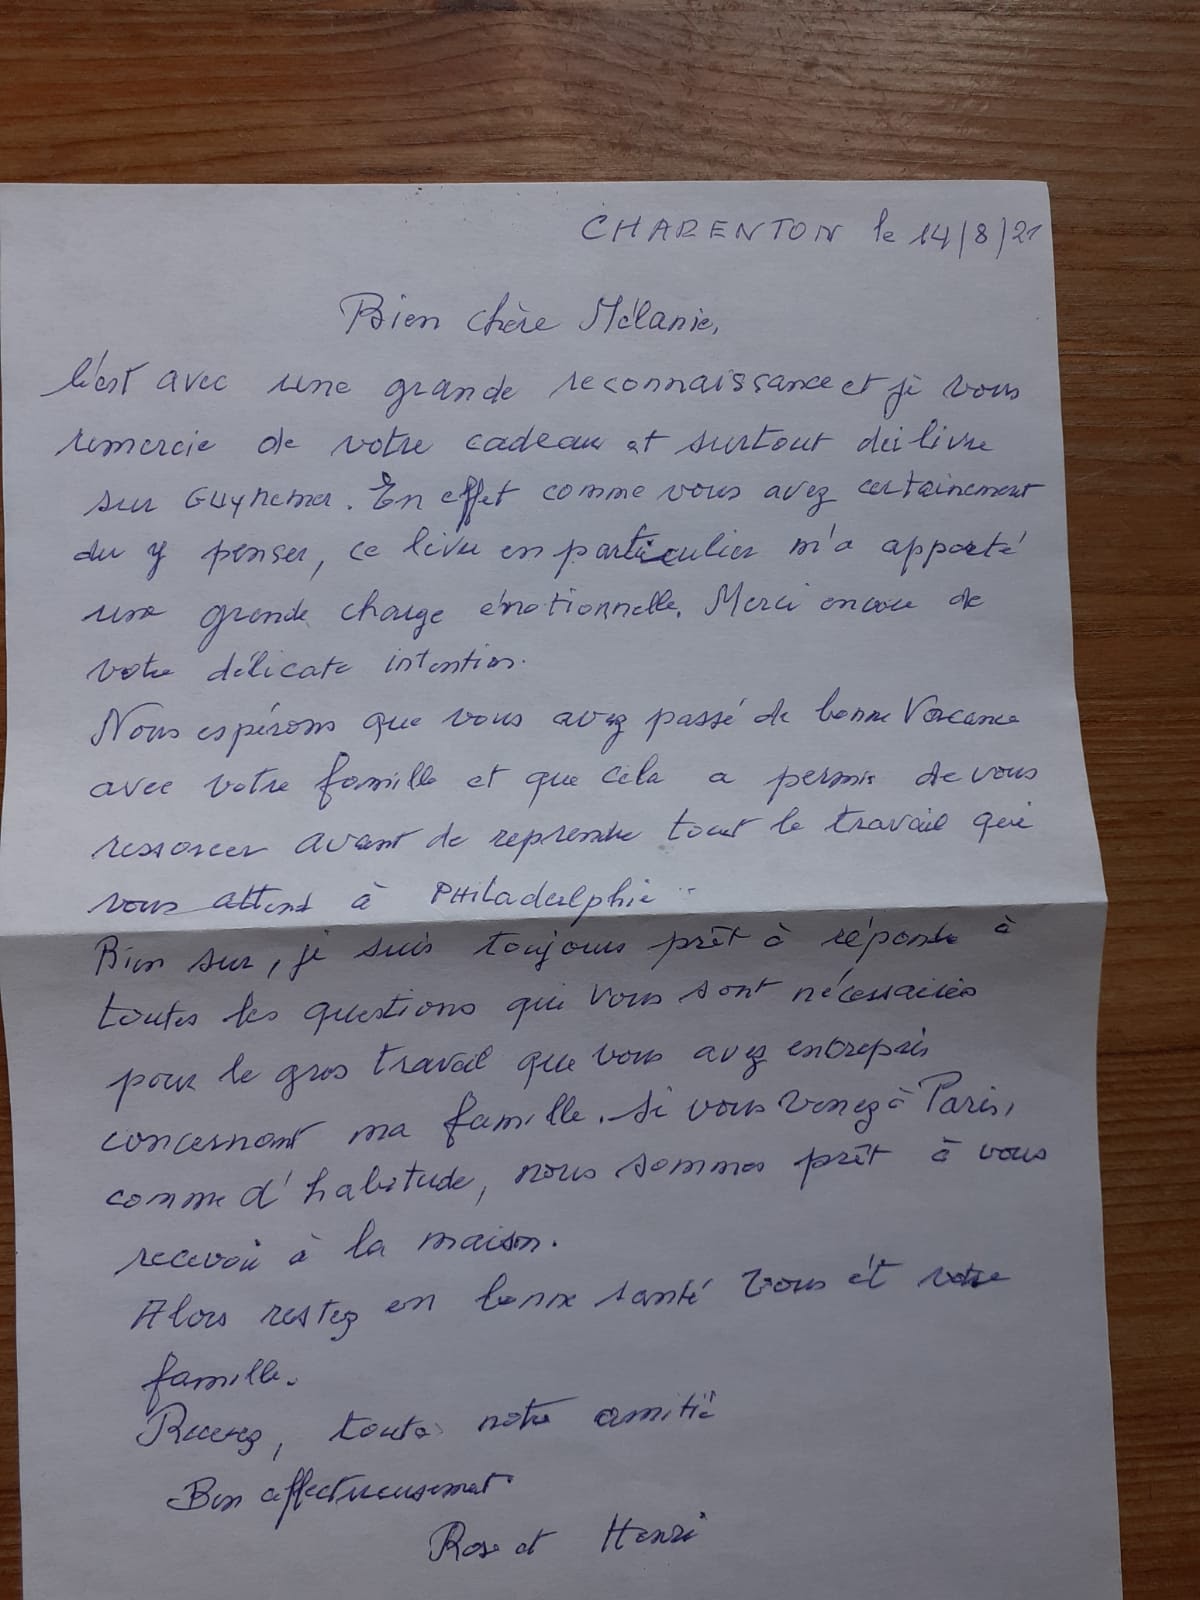 CHARENTON le 14/8/21
Bien chère Mélanie,
C'est avec une grande reconnaissance et je vous
remercie de votre cadeau et surtout du livre
sur Guynemer. En effet comme vous avez certainement
du y penser, ce livre en particulier m'a apporté
une grande charge émotionnelle. Merci encore de
votre délicate intention.
Nous espérons que vous avez passé de bonne Vacance
avec votre famille et que cela a permis de vous
ressourcer avant de reprendre tout le travail qui
vous attend à PHiladelphie..
Bien sur, je suis toujours prêt à répondre à
toutes les questions qui vous sont nécessaires
pour le gros travail que vous avez entrepris
concernant ma famille. Si vous venez à Paris,
comme d'habitude, nous sommes prêt à vous
recevoir à la maison.
Alors restez en bonne santé vous et votre
famille.
Recevez, toute notre amitié
Bien affectueusement
Rose et Henri